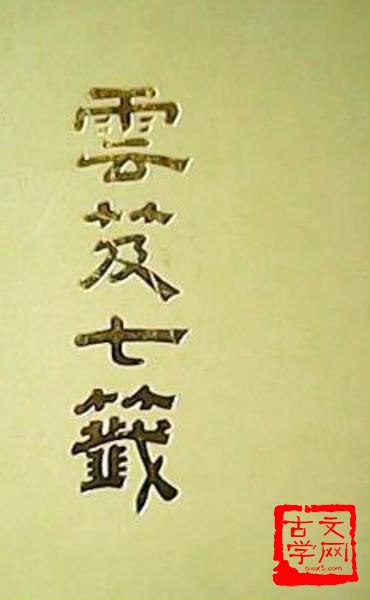 雲笈七籤
古文
学网
gwx5.com